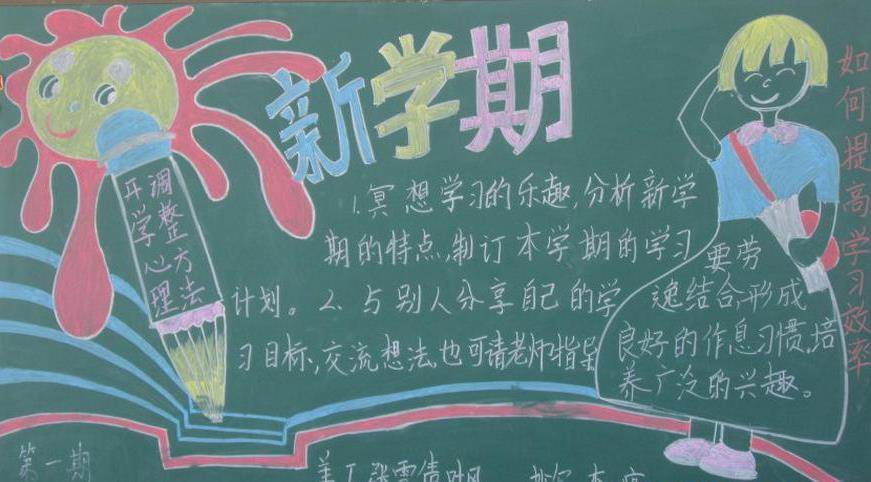 新学期
开学心理
调整方法
1.冥想学习的乐趣,分析新学
期的特点,制订本学期的学习
计划。2、与别人分享自己的学
习目标,交流想法,也可请老师指导
要劳
逸结合,形成
良好的作息习惯,培
养广泛的兴趣。
如何提高学习效率
第一期